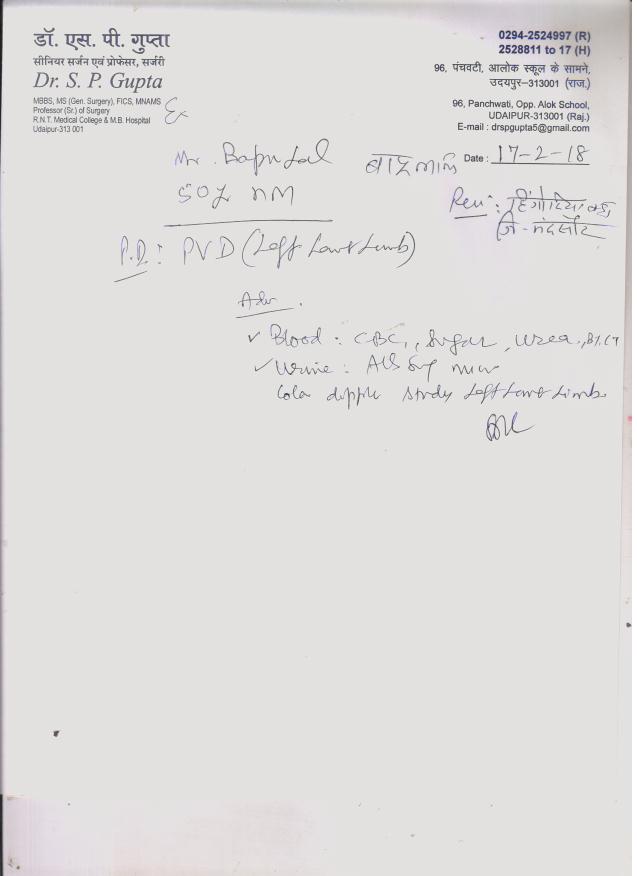 डॉ. एस. पी. गुप्ता
सीनियर सर्जन एवं प्रोफेसर, सर्जरी
Dr. S. P. Gupta
MBBS, MS (Gen. Surgery), FICS, MNAMS
Professor (Sr.) of Surgery
R.N.T. Medical College & M.B. Hospital
Udaipur-313 001
Ex
0294-2524997 (R)
2528811 to 17 (H)
96, पंचवटी, आलोक स्कूल के सामने,
उदयपुर–313001 (राज.)
96, Panchwati, Opp. Alok School,
UDAIPUR-313001 (Raj.)
E-mail : drspgupta5@gmail.com
Date : 17-2-18
Mr. Bapu Lal
50y
जि - मंदसौर
P.D: PVD (Left Lower Limb)
Adv.
✓ Blood : CBC, Sugar, Urea, BT, CT
✓ Urine : Alb Sug micr
Color doppler study Left Lower Limb